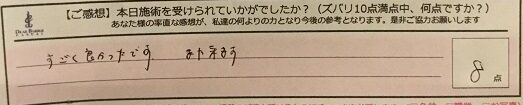 【ご感想】本日施術を受けられていかがでしたか？（ズバリ10点満点中、何点ですか？）
あなた様の率直な感想が、私達の何よりの力となり今後の参考となります。是非ご協力お願いします
すごく良かったです。 また来ます
8点